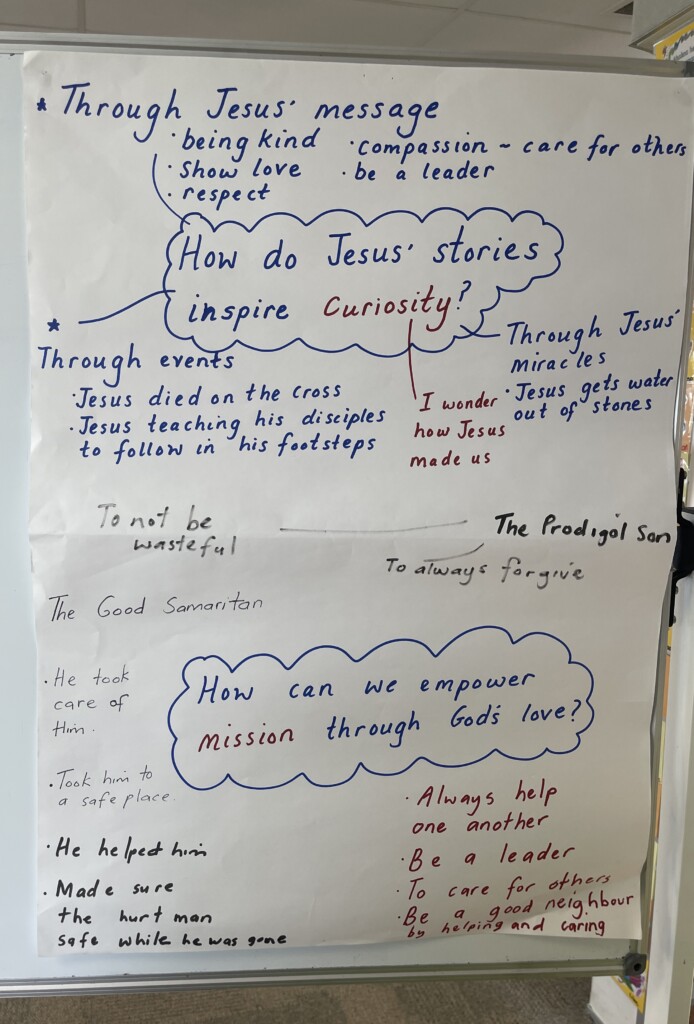 * Through Jesus' message
· being kind
· show love
· respect
· compassion ~ care for others
· be a leader
How do Jesus' stories
inspire curiosity?
*
Through events
· Jesus died on the cross
· Jesus teaching his disciples
to follow in his footsteps
I wonder
how Jesus
made us
Through Jesus'
miracles
· Jesus gets water
out of stones
To not be
wasteful
The Prodigol Son
To always forgive
The Good Samaritan
· He took
care of
Him.
· Took him to
a safe place.
· He helped him
· Made sure
the hurt man
safe while he was gone
How can we empower
mission through God's love?
· Always help
one another
· Be a leader
· To care for others
· Be a good neighbour
by helping and caring